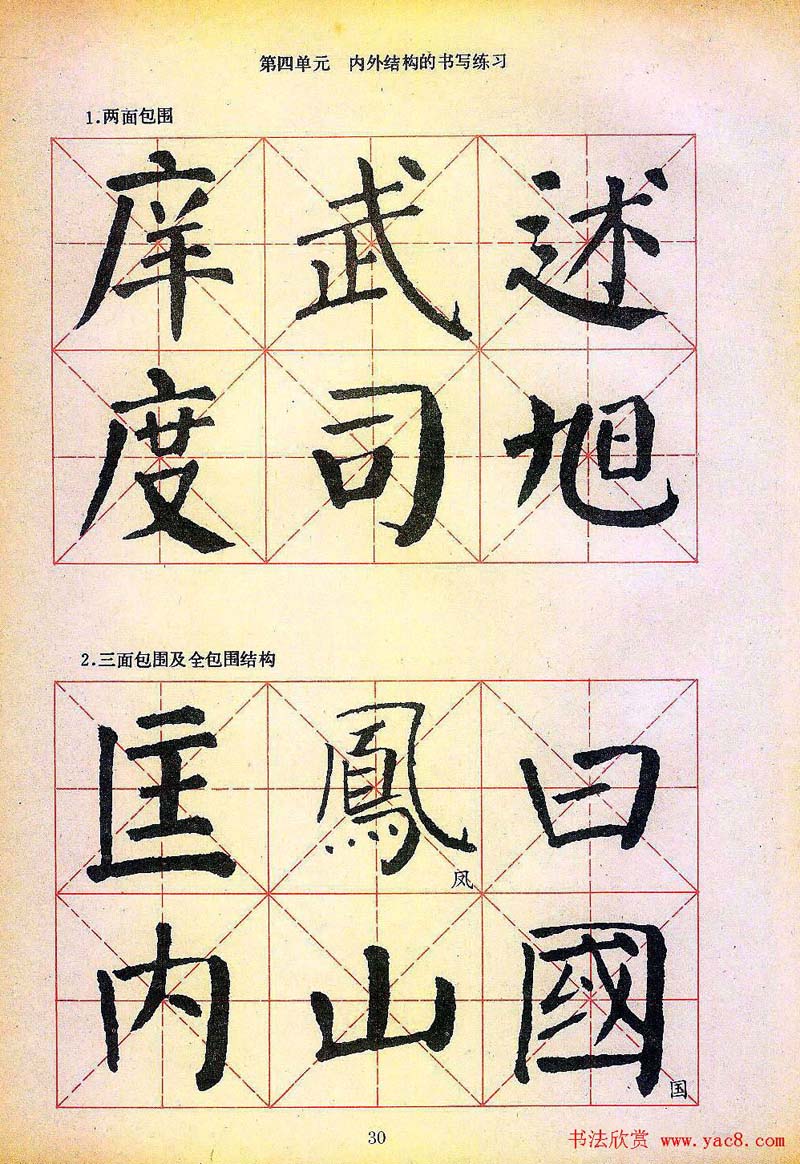 第四单元 内外结构的书写练习
1.两面包围
庠武述
度司旭
2.三面包围及全包围结构
匡鳳曰
凤
内山國
国
30
书法欣赏 www.yac8.com